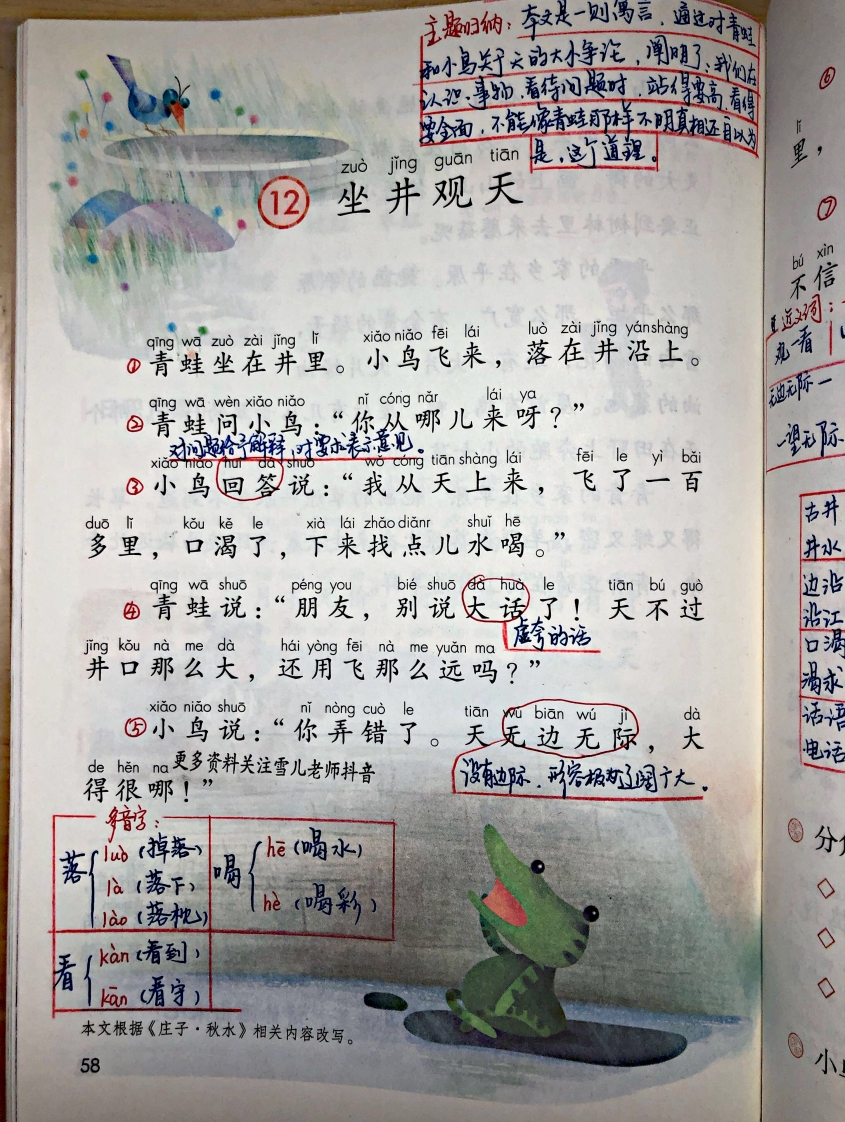 主题归纳：本文是一则寓言，通过对青蛙
和小鸟关于天的大小争论，阐明了：我们在
认识事物，看待问题时，站得要高，看得
要全面，不能像青蛙那样不明真相还自以为
是，这个道理。
zuò jǐng guān tiān
12 坐井观天
qīng wā zuò zài jǐng lǐ xiǎo niǎo fēi lái luò zài jǐng yán shàng
① 青蛙坐在井里。小鸟飞来，落在井沿上。
qīng wā wèn xiǎo niǎo nǐ cóng nǎr lái ya
② 青蛙问小鸟：“你从哪儿来呀？”
对问题给予解释，对要求表示意见。
xiǎo niǎo huí dá shuō wǒ cóng tiān shàng lái fēi le yì bǎi
③ 小鸟回答说：“我从天上来，飞了一百
duō lǐ kǒu kě le xià lái zhǎo diǎnr shuǐ hē
多里，口渴了，下来找点儿水喝。”
qīng wā shuō péng you bié shuō dà huà le tiān bú guò
④ 青蛙说：“朋友，别说大话了！天不过
虚夸的话
jǐng kǒu nà me dà hái yòng fēi nà me yuǎn ma
井口那么大，还用飞那么远吗？”
xiǎo niǎo shuō nǐ nòng cuò le tiān wú biān wú jì dà
⑤ 小鸟说：“你弄错了。天无边无际，大
没有边际，形容极为辽阔广大。
de hěn na 更多资料关注雪儿老师抖音
得很哪！”
多音字：
落 luò（掉落）
là（落下）
lào（落枕）
喝 hē（喝水）
hè（喝彩）
看 kàn（看到）
kān（看守）
本文根据《庄子·秋水》相关内容改写。
58
⑥
lǐ
里，
⑦
bú xìn
不信
近义词：
观—看
无边无际—
一望无际
古井
井水
边沿
沿江
口渴
渴求
话语
电话
分
小